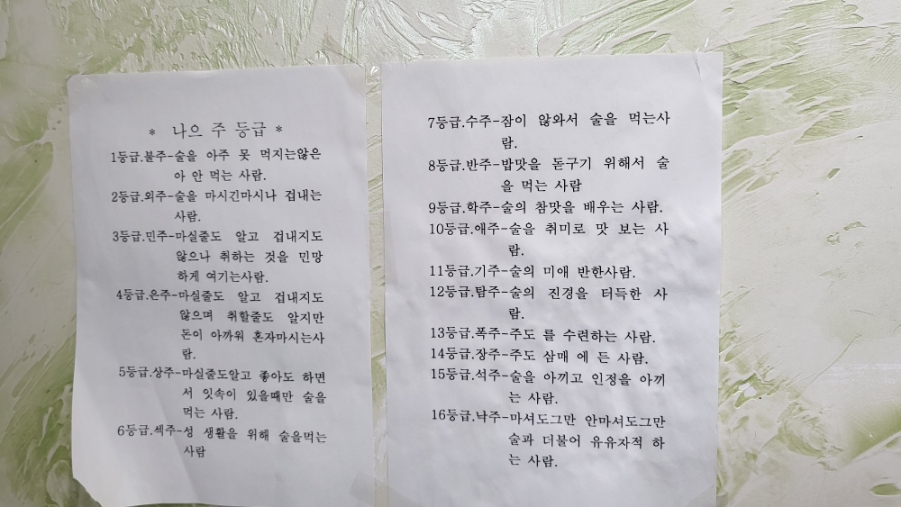 * 나으 주 등급 *
1등급.불주-술을 아주 못 먹지는않은
아 안 먹는 사람.
2등급.외주-술을 마시긴마시나 겁내는
사람.
3등급.민주-마실줄도 알고 겁내지도
않으나 취하는 것을 민망
하게 여기는사람.
4등급.은주-마실줄도 알고 겁내지도
않으며 취할줄도 알지만
돈이 아까워 혼자마시는사
람.
5등급.상주-마실줄도알고 좋아도 하면
서 잇속이 있을때만 술을
먹는 사람.
6등급.섹주-성 생활을 위해 술을먹는
사람
7등급.수주-잠이 않와서 술을 먹는사
람.
8등급.반주-밥맛을 돋구기 위해서 술
을 먹는 사람
9등급.학주-술의 참맛을 배우는 사람.
10등급.애주-술을 취미로 맛 보는 사
람.
11등급.기주-술의 미애 반한사람.
12등급.탐주-술의 진경을 터득한 사
람.
13등급.폭주-주도 를 수련하는 사람.
14등급.장주-주도 삼매 에 든 사람.
15등급.석주-술을 아끼고 인정을 아끼
는 사람.
16등급.낙주-마셔도그만 안마셔도그만
술과 더불어 유유자적 하
는 사람.